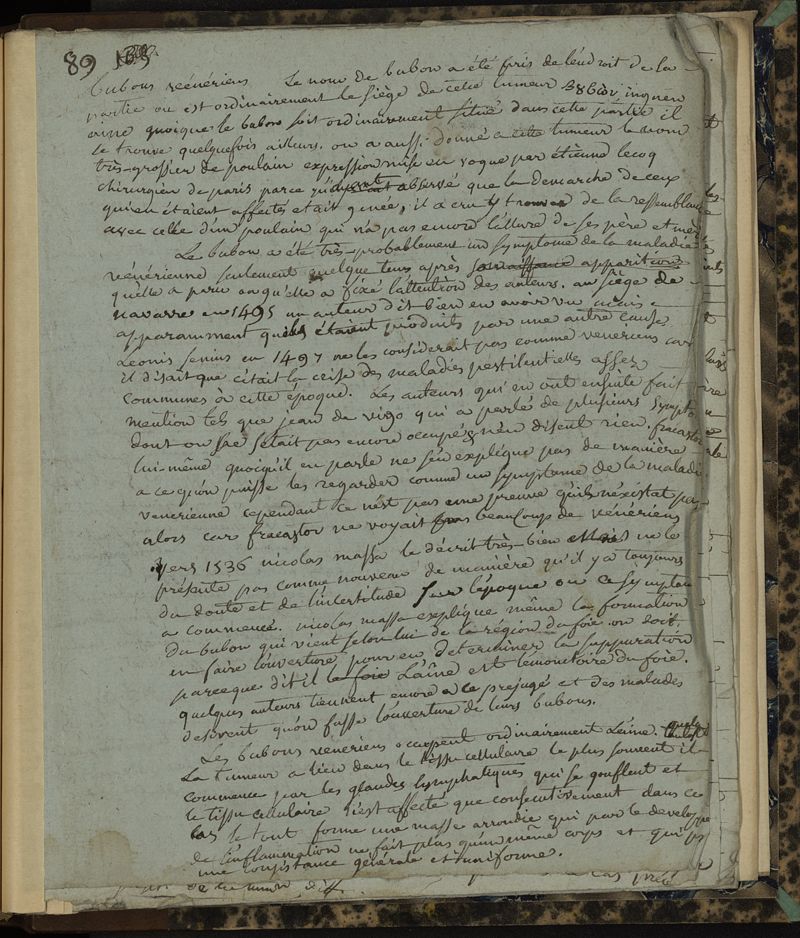 89
bubons vénériens Le nom de bubon a été pris de l'endroit de la
partie ou est ordinairement le siège de cette tumeur βυβων inguen
aine quoique le bubon soit ordinairement situé dans cette partie il
se trouve quelquefois ailleurs. on a aussi donné a cette tumeur le nom
très-grossier de poulain expression mise en vogue par étienne lecoq
chirurgien de paris parce qu'ayant observé que la demarche de ceux
qui en étaient affectés etait genée, il a cru y trouver de la ressemblance
avec celle d'un poulain qui n'a pas encore l'allure de ses père et mère
Le bubon a été très-probablement un symptome de la maladie
vénérienne seulement quelque tems après son apparition
qu'elle a paru ou qu'elle a fixé l'attention des auteurs. au siège de
navarre en 1495 un auteur dit bien en avoir vu mais
apparamment qu'ils étaient produits par une autre cause
Leonis senius en 1497 ne les considerait pas comme veneriens car
il disait que c'était la crise des maladies pestilentielles assez
communes a cette époque. Les auteurs qui en ont ensuite fait
mention tels que jean de vigo qui a parlé de plusieurs sympto
dont on ne s'était pas encore occupé n'en disent rien. fracastor
lui-même quoiqu'il en parle ne s'en explique pas de manière
a ce qu'on puisse les regarder comme un symptome de la maladie
venerienne cependant ce n'est pas une preuve qu'ils n'existat pas
alors car fracastor ne voyait pas beaucoup de veneriens
vers 1536 nicolas massa le décrit très-bien mais ne le
présente pas comme nouveau de manière qu'il y a toujours
du doute et de l'incertitude sur l'époque ou ce symptome
a commencé. nicolas massa explique même la formation
du bubon qui vient selon lui de la région du foie on doit
en faire l'ouverture pour en determiner la suppuration
parceque dit il L'aine est l'émonctoire du foie.
quelques auteurs tiennent encore a ce prejugé et des malades
desirent qu'on fasse l'ouverture de leurs bubons.
Les bubons veneriens occupent ordinairement l'aine.
La tumeur a lieu dans le tissu cellulaire le plus souvent il
commence par les glandes lymphatiques qui se gonflent et
le tissu cellulaire n'est affecté que consecutivement dans ce
cas le tout forme une masse arrondie qui par le developpe
de l'inflammation ne fait plus qu'un même corps et qui
une consistance générale et uniforme.